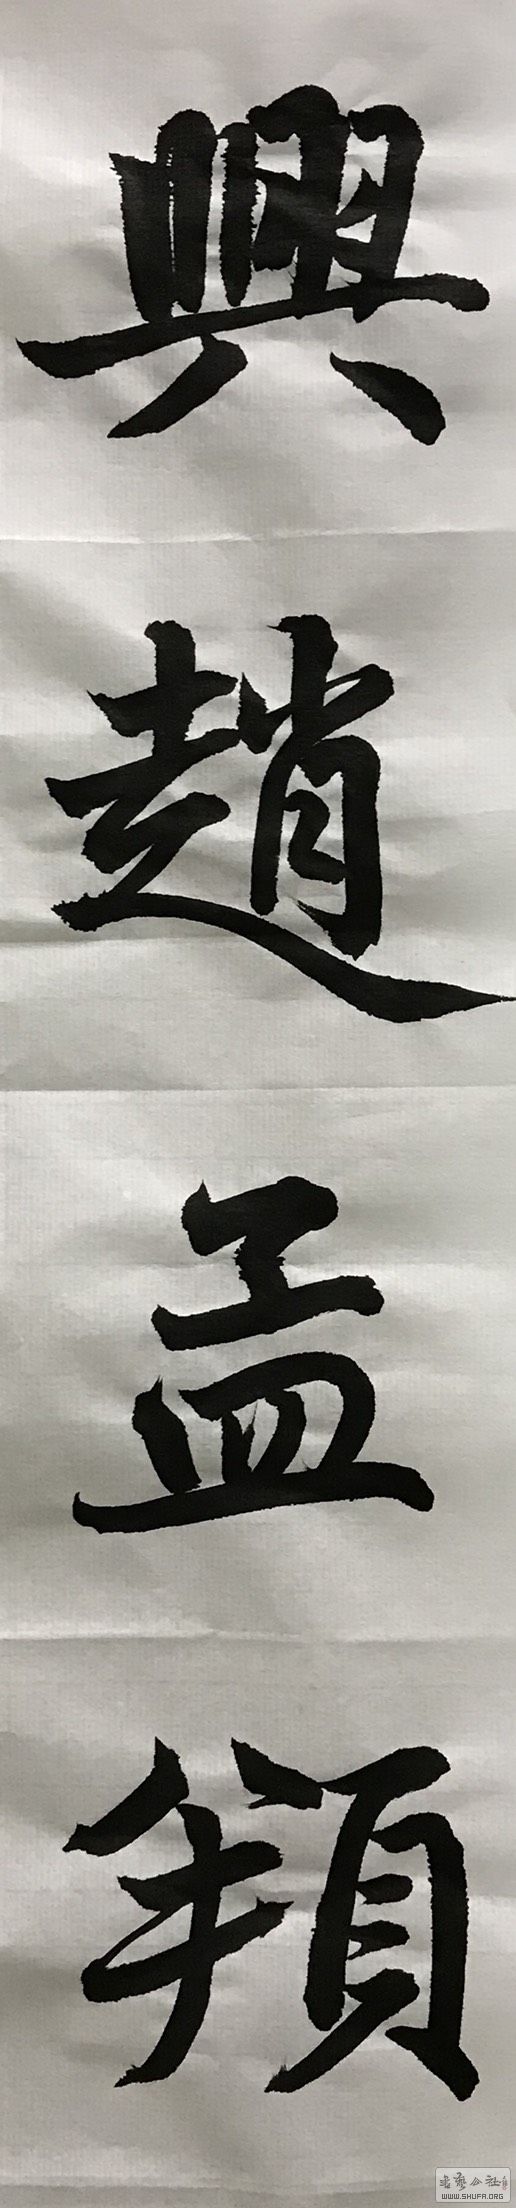 興趙孟頫
書藝公社
WWW.SHUFA.ORG